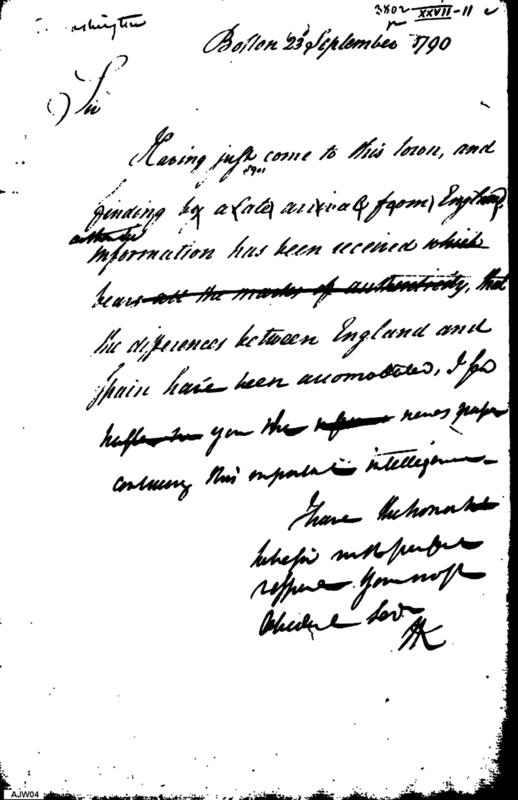 3802 XXVII-11
Washington
Boston 23d September 1790
Sir
Having just come to this town, and
finding by a late arrival from England
authentic
information has been received which
bears all the marks of authenticity, that
the differences between England and
Spain have been accomodated, I for
you the news paper
containing this important intelligence
I have the honor to
be Sir with perfect
respect Your most
Obedient Ser
HK
AJW04